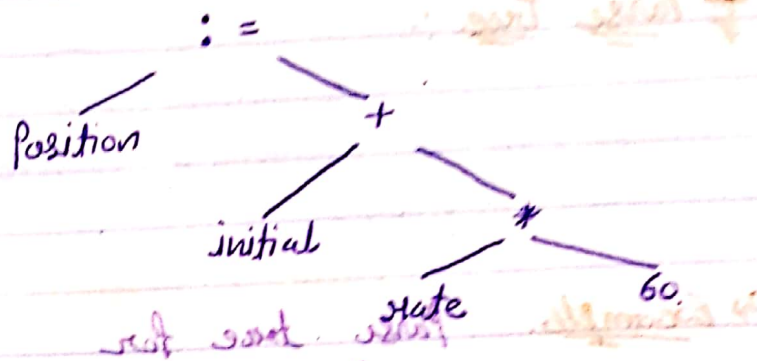 :=
Position
+
initial
*
rate
60.